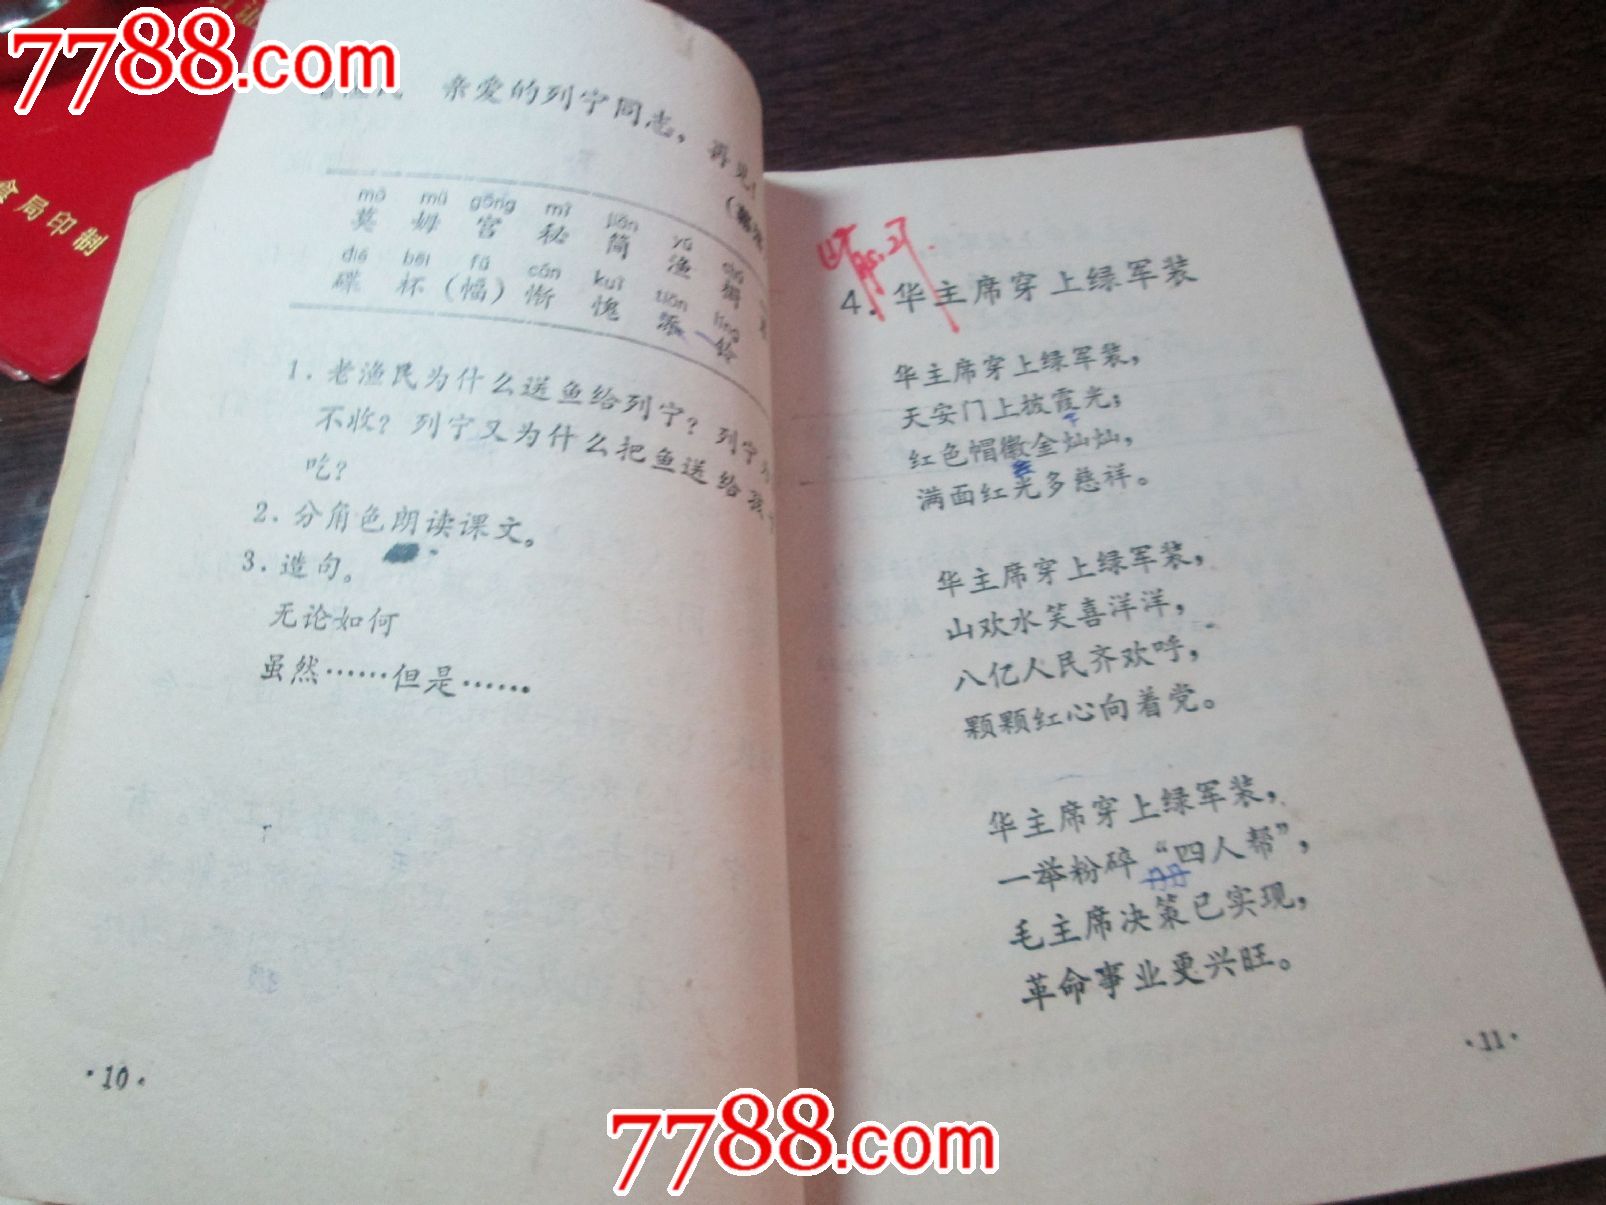 7788.com
食局印制
亲爱的列宁同志，再见！
mò mǔ gōng mì jiǎn yú
莫 姆 宫 秘 简 渔
dié bēi fú cán kuì tiān líng
碟 杯 （幅） 惭 愧 添 铃
1. 老渔民为什么送鱼给列宁？列宁为
不收？列宁又为什么把鱼送给孩
吃？
2. 分角色朗读课文。
3. 造句。
无论如何
虽然……但是……
·10·
4. 华主席穿上绿军装
华主席穿上绿军装，
天安门上披霞光；
红色帽徽金灿灿，
满面红光多慈祥。
华主席穿上绿军装，
山欢水笑喜洋洋，
八亿人民齐欢呼，
颗颗红心向着党。
华主席穿上绿军装，
一举粉碎“四人帮”，
毛主席决策已实现，
革命事业更兴旺。
·11·
7788.com